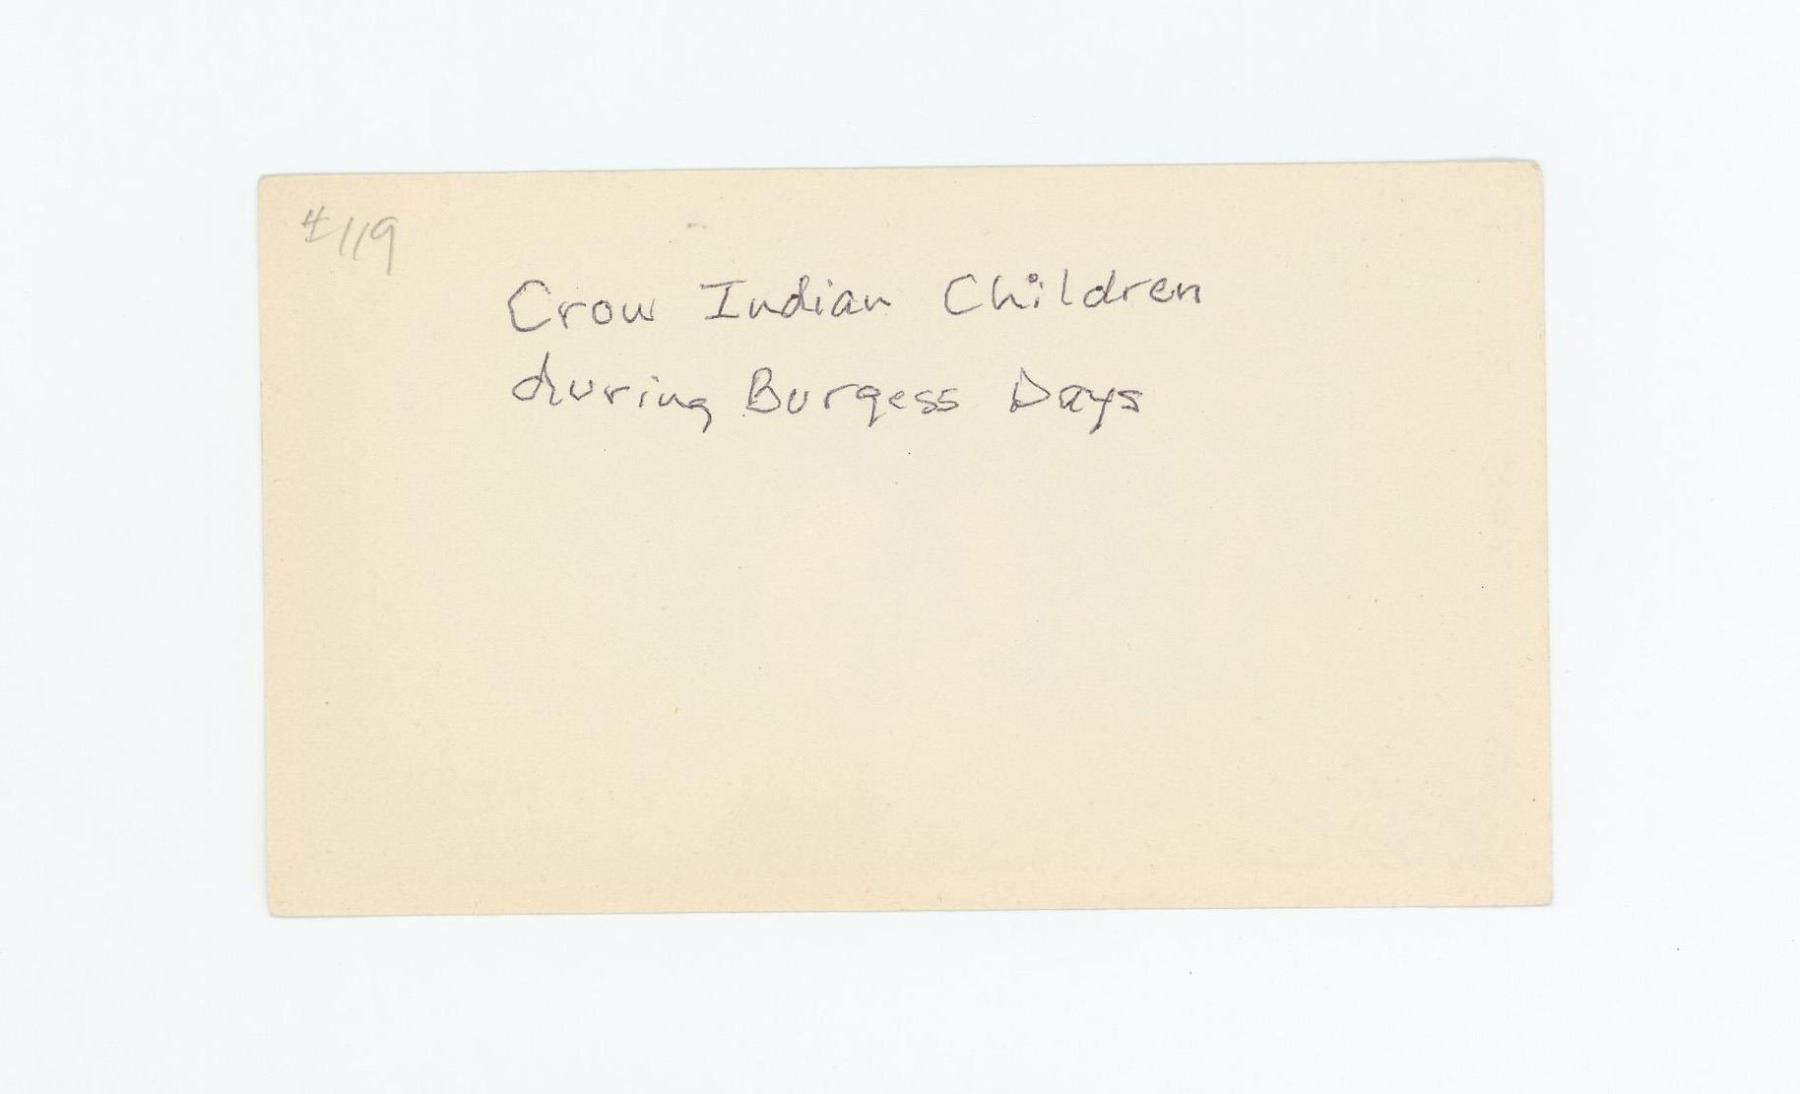 #119
Crow Indian Children
during Burgess Days